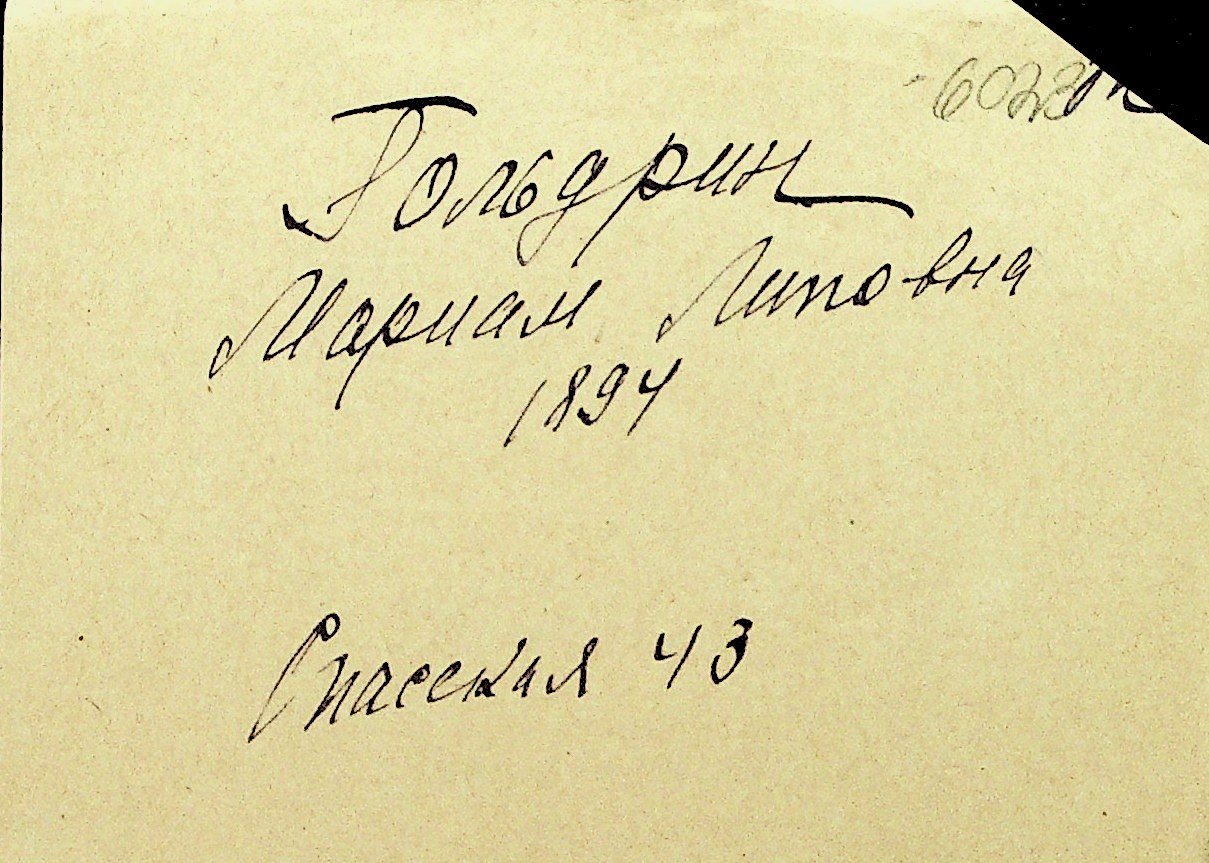 Гольдрин
Мариам Липовна
1894
Спасская 43